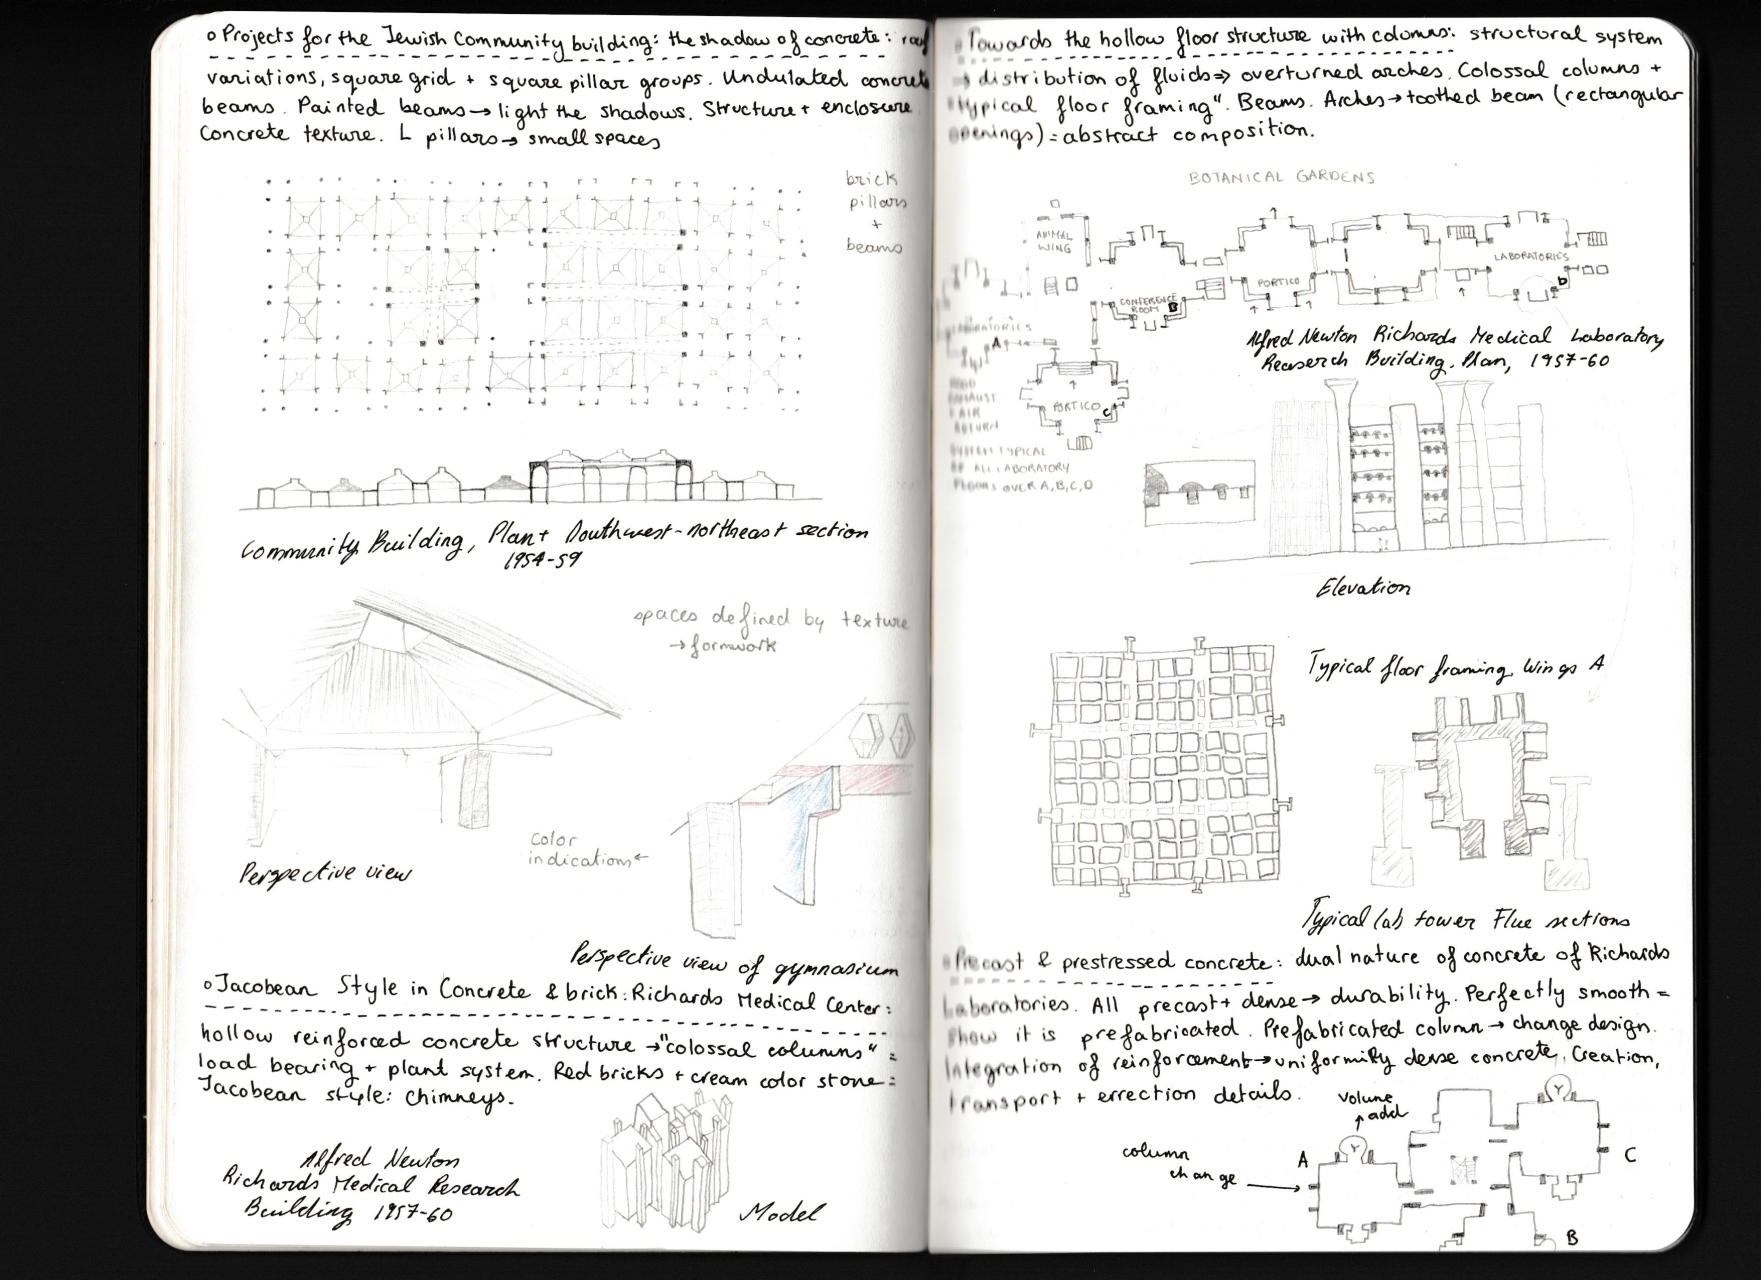 o Projects for the Jewish Community building: the shadow of concrete: roof
variations, square grid + square pillar groups. Undulated concrete
beams. Painted beams → light the shadows. Structure + enclosure.
Concrete texture. L pillars → small spaces
brick
pillars
+
beams
Community Building, Plan + Southwest-northeast section
1954-59
spaces defined by texture
→ formwork
color
indications ←
Perspective view
Perspective view of gymnasium
o Jacobean Style in Concrete & brick: Richards Medical Center:
hollow reinforced concrete structure → "colossal columns" =
load bearing + plant system. Red bricks + cream color stone =
Jacobean style: Chimneys.
Alfred Newton
Richards Medical Research
Building 1957-60
Model
o Towards the hollow floor structure with columns: structural system
→ distribution of fluids ⇒ overturned arches. Colossal columns +
"typical floor framing". Beams. Arches → toothed beam (rectangular
openings) = abstract composition.
BOTANICAL GARDENS
ANIMAL
WING
LABORATORIES
CONFERENCE
ROOM B
PORTICO
D
LABORATORIES
A
PORTICO
C
EXHAUST
AIR
RETURN
SYSTEM TYPICAL
OF ALL LABORATORY
FLOORS OVER A, B, C, D
Alfred Newton Richards Medical Laboratory
Reaserch Building. Plan, 1957-60
Elevation
Typical floor framing, Wings A
Typical lab tower Flue sections
o Precast & prestressed concrete: dual nature of concrete of Richards
Laboratories. All precast + dense → durability. Perfectly smooth =
show it is prefabricated. Prefabricated column → change design.
Integration of reinforcement → uniformity dense concrete, Creation,
transport + errection details.
volune
↑ add
column
change →
A
C
B